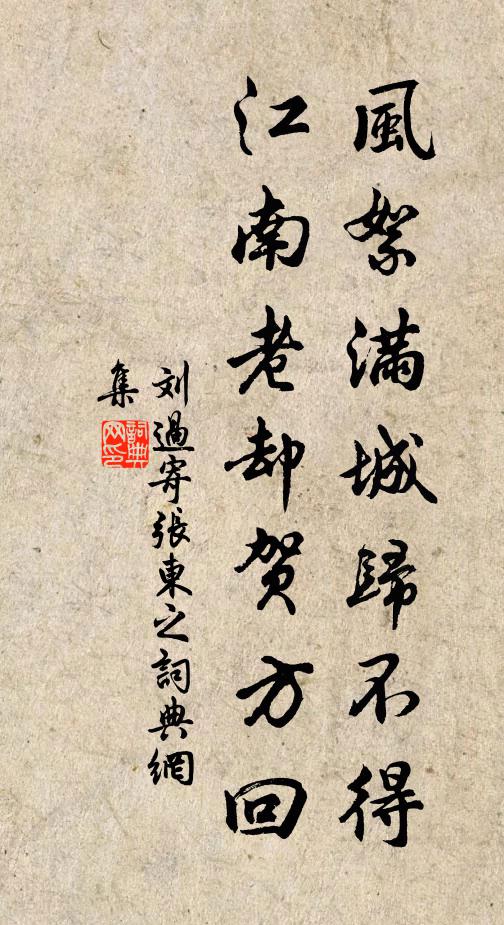 風絮滿城歸不得
江南老却賀方回
刘過寄張東之詞典網
集
詞典网印